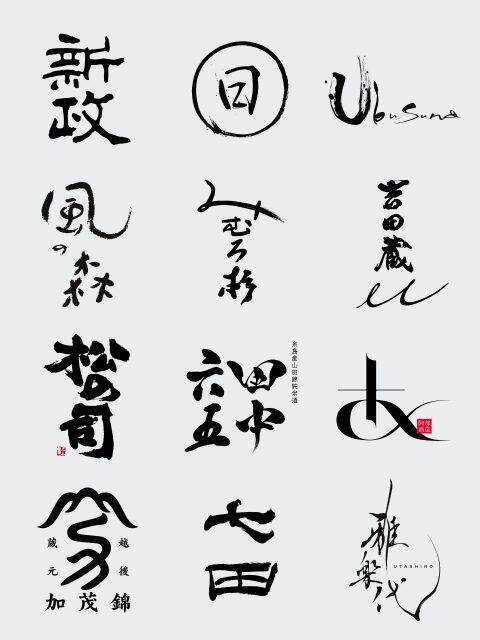 新政
日
Ubusuna
風の森
みむろ杉
吉田蔵
u
松の司
糸島産山田錦純米酒
田中
六五
あ
越後
蔵元
加茂錦
七田
雅楽代
UTASHIRO